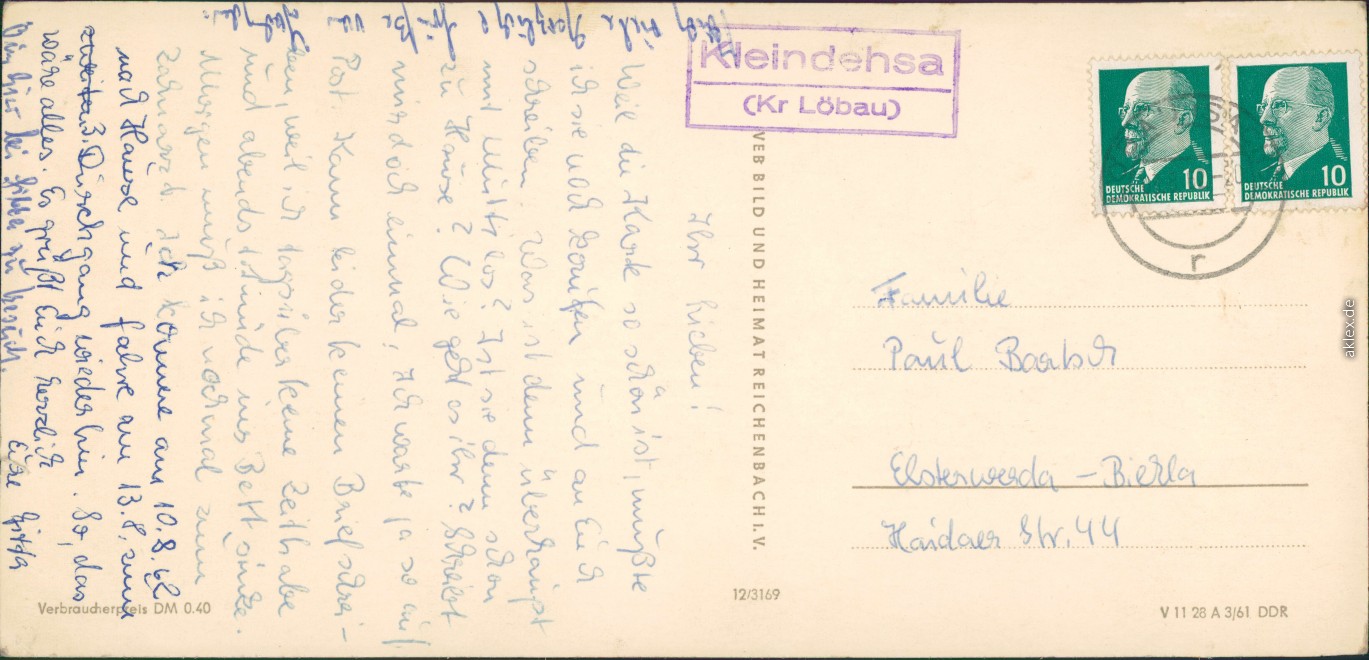 Ihr Lieben!
Weil die Karte so schön ist, mußte
ich sie noch kaufen und an Euch
schreiben. Was ist denn überhaupt
mit Mutti los? Ist sie denn schon
zu Hause? Wie geht es ihr? Schreibt
mir doch einmal! Ich warte ja so auf
Post. Kann leider keinen Brief schrei-
ben, weil ich tagsüber keine Zeit habe
und abends müde ins Bett sinke.
Morgen muß ich nochmal zum
Zahnarzt. Ich komme am 10.8.62
nach Hause und fahre am 13.8. zum
3. Durchgang wieder hin. So, das
wäre alles. Es grüßt Euch herzlich
Eure
bei
viele herzliche Grüße
Kleindehsa
(Kr Löbau)
VEB BILD UND HEIMAT REICHENBACH I. V.
10
DEUTSCHE
DEMOKRATISCHE REPUBLIK
10
DEUTSCHE
DEMOKRATISCHE REPUBLIK
r
Familie
Paul Bartsch
Elsterwerda - Biehla
Haidaer Str. 44
Verbraucherpreis DM 0.40
12/3169
V 11 28 A 3/61 DDR
aklex.de